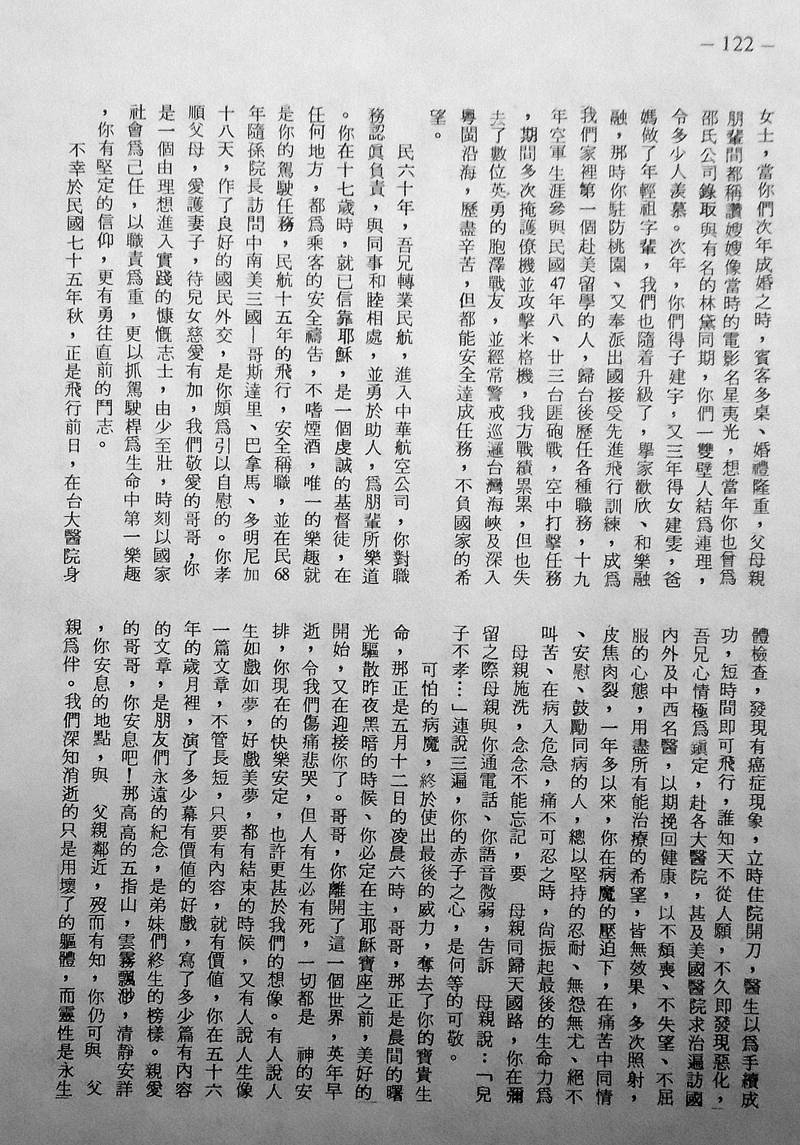 — 122 —
女士，當你們次年成婚之時，賓客多桌、婚禮隆重，父母親
朋輩間都稱讚嫂嫂像當時的電影名星夷光，想當年你也曾爲
邵氏公司錄取與有名的林黛同期，你們一雙璧人結爲連理，
令多少人羨慕。次年，你們得子建宇，又三年得女建雯，爸
媽做了年輕祖字輩，我們也隨着升級了，舉家歡欣、和樂融
融，那時你駐防桃園、又奉派出國接受先進飛行訓練，成爲
我們家裡第一個赴美留學的人，歸台後歷任各種職務，十九
年空軍生涯參與民國47年八、廿三台匪砲戰，空中打擊任務
，期間多次掩護僚機並攻擊米格機，我方戰績累累，但也失
去了數位英勇的胞澤戰友，並經常警戒巡邏台灣海峽及深入
粵閩沿海，歷盡辛苦，但都能安全達成任務，不負國家的希
望。
民六十年，吾兄轉業民航，進入中華航空公司，你對職
務認眞負責，與同事和睦相處，並勇於助人，爲朋輩所樂道
。你在十七歲時，就已信靠耶穌，是一個虔誠的基督徒，在
任何地方，都爲乘客的安全禱告，不嗜煙酒，唯一的樂趣就
是你的駕駛任務，民航十五年的飛行，安全稱職，並在民68
年隨係院長訪問中南美三國—哥斯達里、巴拿馬、多明尼加
十八天，作了良好的國民外交，是你頗爲引以自慰的。你孝
順父母，愛護妻子，待兒女慈愛有加，我們敬愛的哥哥，你
是一個由理想進入實踐的慷慨志士，由少至壯，時刻以國家
社會爲己任，以職責爲重，更以抓駕駛桿爲生命中第一樂趣
，你有堅定的信仰，更有勇往直前的鬥志。
不幸於民國七十五年秋，正是飛行前日，在台大醫院身
體檢查，發現有癌症現象，立時住院開刀，醫生以爲手續成
功，短時間即可飛行，誰知天不從人願，不久即發現惡化，
吾兄心情極爲鎭定，赴各大醫院，甚及美國醫院求治遍訪國
內外及中西名醫，以期挽回健康，以不頹喪、不失望、不屈
服的心態，用盡所有能治療的希望，皆無效果，多次照射，
皮焦肉裂，一年多以來，你在病魔的壓迫下，在痛苦中同情
、安慰、鼓勵同病的人，總以堅持的忍耐、無怨無尤、絕不
叫苦、在病入危急，痛不可忍之時，尙振起最後的生命力爲
母親施洗，念念不能忘記，要　母親同歸天國路，你在彌
留之際母親與你通電話、你語音微弱，告訴　母親說：「兒
子不孝…」連說三遍，你的赤子之心，是何等的可敬。
可怕的病魔，終於使出最後的威力，奪去了你的寶貴生
命，那正是五月十二日的凌晨六時，哥哥，那正是晨間的曙
光驅散昨夜黑暗的時候、你必定在主耶穌寶座之前，美好的
開始，又在迎接你了。哥哥，你離開了這一個世界，英年早
逝，令我們傷痛悲哭，但人有生必有死，一切都是　神的安
排，你現在的快樂安定，也許更甚於我們的想像。有人說人
生如戲如夢，好戲美夢，都有結束的時候，又有人說人生像
一篇文章，不管長短，只要有內容，就有價值，你在五十六
年的歲月裡，演了多少幕有價值的好戲，寫了多少篇有內容
的文章，是朋友們永遠的紀念，是弟妹們終生的榜樣。親愛
的哥哥，你安息吧！那高高的五指山，雲霧飄渺，清靜安詳
，你安息的地點，與　父親鄰近，歿而有知，你仍可與　父
親爲伴。我們深知消逝的只是用壞了的軀體，而靈性是永生